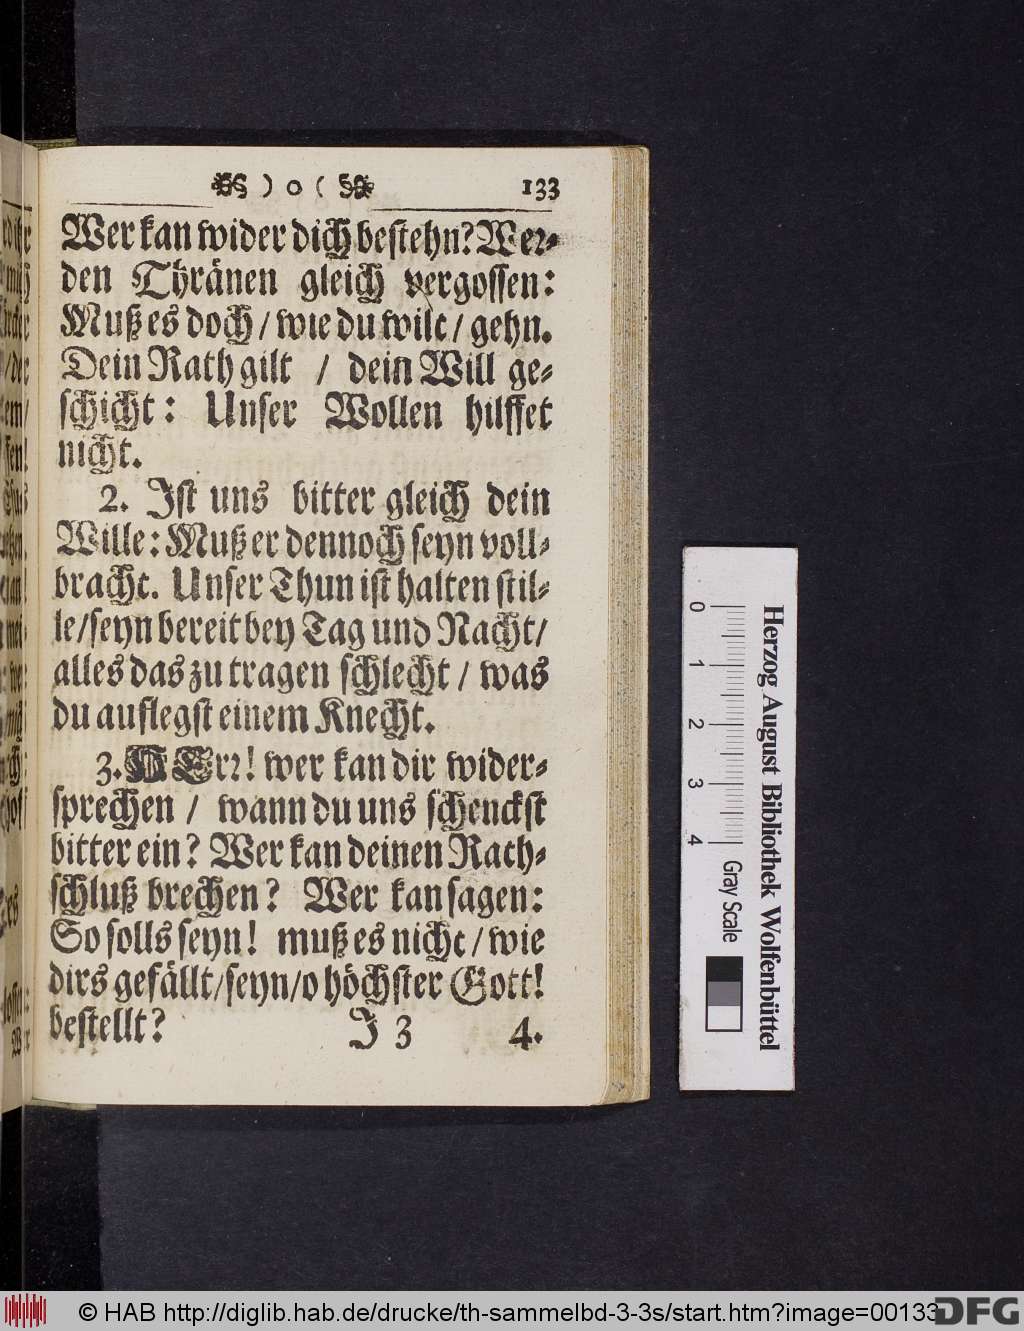 ) o ( 133
Wer kan wider dich bestehn? Wer-
den Thränen gleich vergossen:
Muß es doch / wie du wilt / gehn.
Dein Rath gilt / dein Will ge-
schicht: Unser Wollen hilffet
nicht.
2. Ist uns bitter gleich dein
Wille: Muß er dennoch seyn voll-
bracht. Unser Thun ist halten stil-
le/seyn bereit bey Tag und Nacht/
alles das zu tragen schlecht / was
du auflegst einem Knecht.
3. HErr! wer kan dir wider-
sprechen / wann du uns schenckst
bitter ein? Wer kan deinen Rath-
schluß brechen? Wer kan sagen:
So solls seyn! muß es nicht / wie
dirs gefällt/seyn/o höchster Gott!
bestellt? J 3 4.
Herzog August Bibliothek Wolfenbüttel
0 1 2 3 4 Gray Scale
© HAB http://diglib.hab.de/drucke/th-sammelbd-3-3s/start.htm?image=00133
DFG